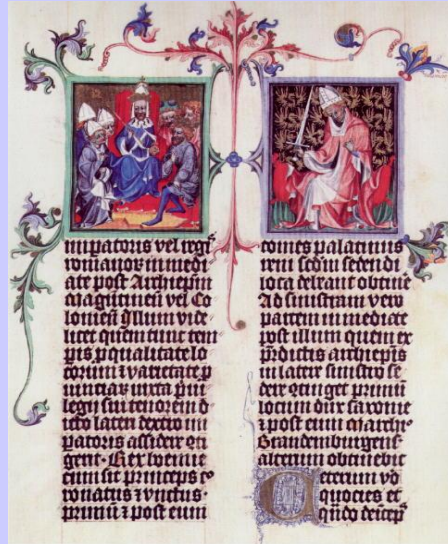 impatoris vel regis
romanoꝝ immedi
ate post Archiepm̄
Magūtineñ vel Co
lonieñ illum vide
licet quem tunc tem
pis pqualitate lo
corum ⁊ varietate p
uinciaꝝ iuxta pui
legij sui tenorem
latere dextro im
patoris assidere
gent. Rex boemie
cum sit princeps co
ronatus ⁊ vnctus
primū ⁊ post eum
comes palatinus
reni scdm sedendi
loca debeant obtinē
Ad sinistram vero
partem immediate
post illum quem ex
p̄dictis archiepis
in latere sinistro se
dere ↄtinget primū
locum dux saxonie
⁊ post eum marchᵒ
Brandemburgens̄
alterum obtinebit
Ceterum vō
quocies et
qn̄do deīcep̄